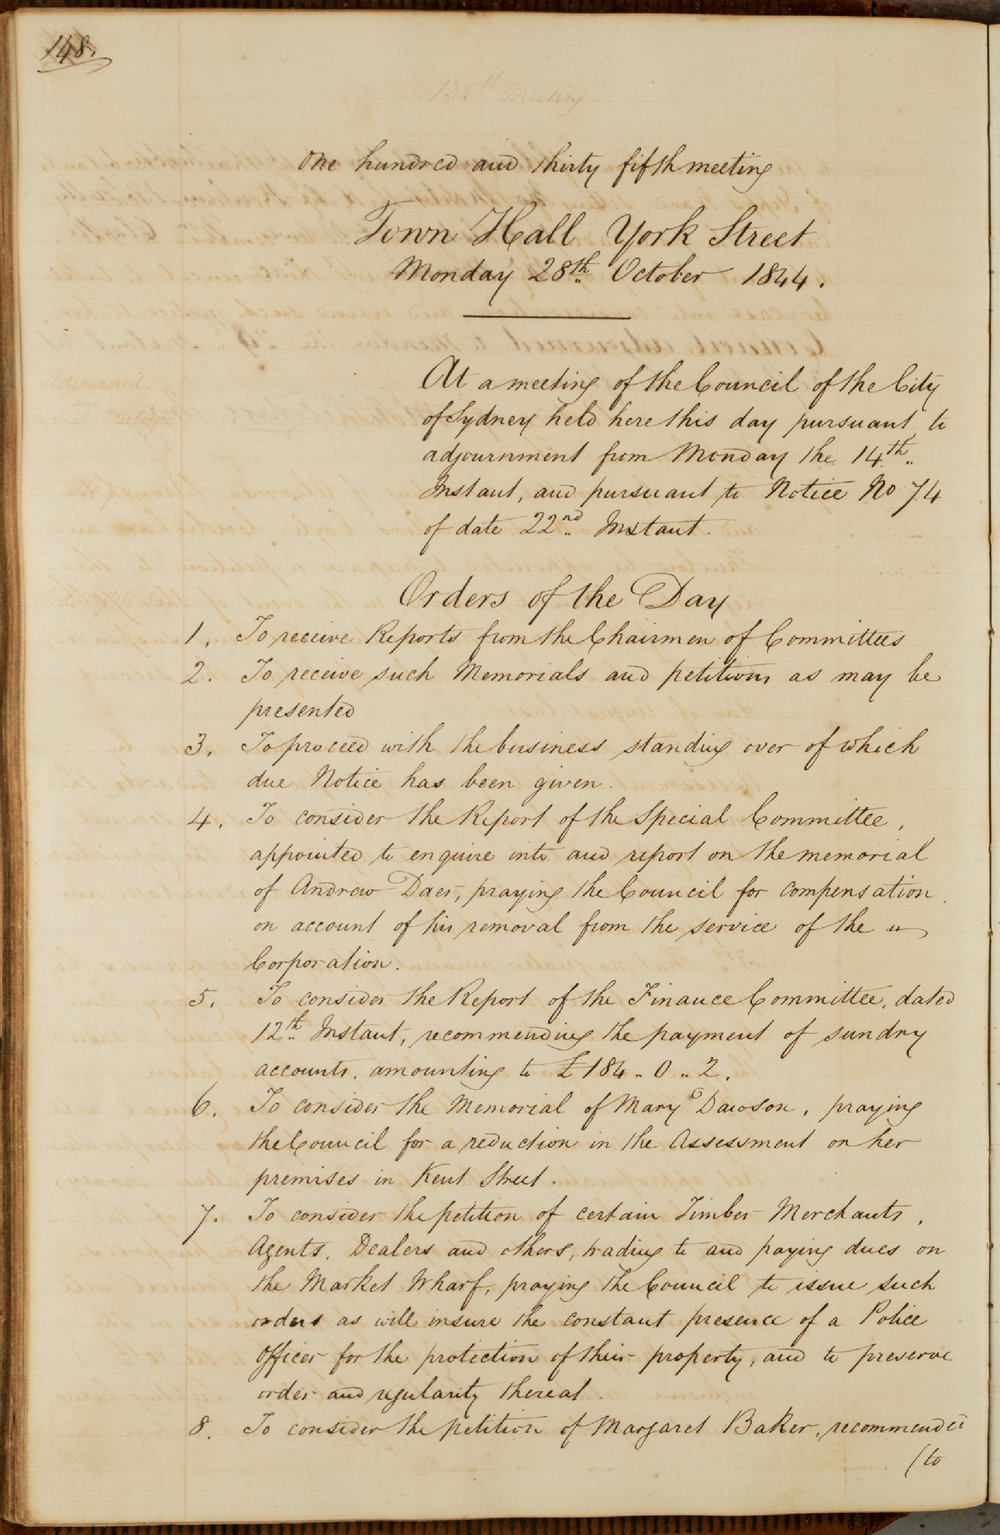 148.
135th Meeting
One hundred and thirty fifth meeting
Town Hall York Street
Monday 28th. October 1844.
At a meeting of the Council of the City
of Sydney held here this day pursuant to
adjournment from Monday the 14th..
Instant, and pursuant to Notice No 74
of date 22nd.. Instant.
Orders of the Day
1. To receive Reports from the Chairmen of Committees
2. To receive such Memorials and petitions as may be
presented
3. To proceed with the business standing over of which
due Notice has been given.
4. To consider the Report of the Special Committee,
appointed to enquire into and report on the memorial
of Andrew Daes, praying the Council for compensation
on account of his removal from the service of the
Corporation.
5. To consider the Report of the Finance Committee, dated
12th.. Instant, recommending the payment of sundry
accounts, amounting to £184 .. 0 .. 2.
6. To consider the Memorial of Mary Dawson, praying
the Council for a reduction in the Assessment on her
premises in Kent Street.
7. To consider the petition of certain Timber Merchants,
Agents, Dealers and others, trading to and paying dues on
the Market Wharf, praying the Council to issue such
orders as will insure the constant presence of a Police
Officer for the protection of their property, and to preserve
order and regularity thereat.
8. To consider the petition of Margaret Baker, recommended
(to